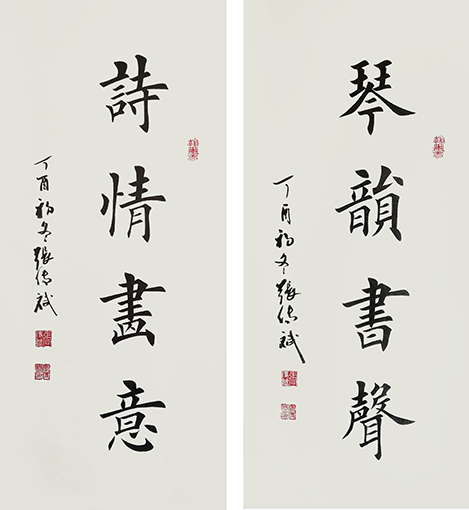 琴韻書聲
丁酉初冬張斌
詩情畵意
丁酉初冬張斌